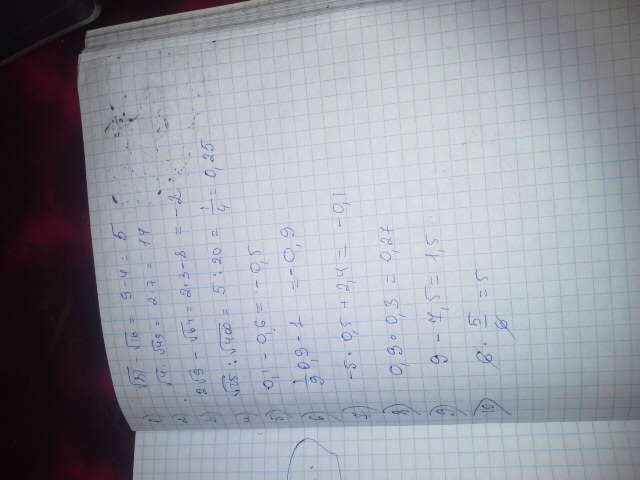 1) √81 - √16 = 9-4 = 5
2) √4 · √49 = 2·7 = 14
3) 2√9 - √64 = 2·3-8 = -2
4) √25 : √400 = 5 : 20 = 1/4 = 0,25
5) 0,1 - 0,6 = -0,5
6) 1/9 · 0,9 - 1 = -0,9
7) -5 · 0,5 + 2,4 = -0,1
8) 0,9 · 0,3 = 0,27
9) 9 - 7,5 = 1,5
10) 6 · 5/6 = 5